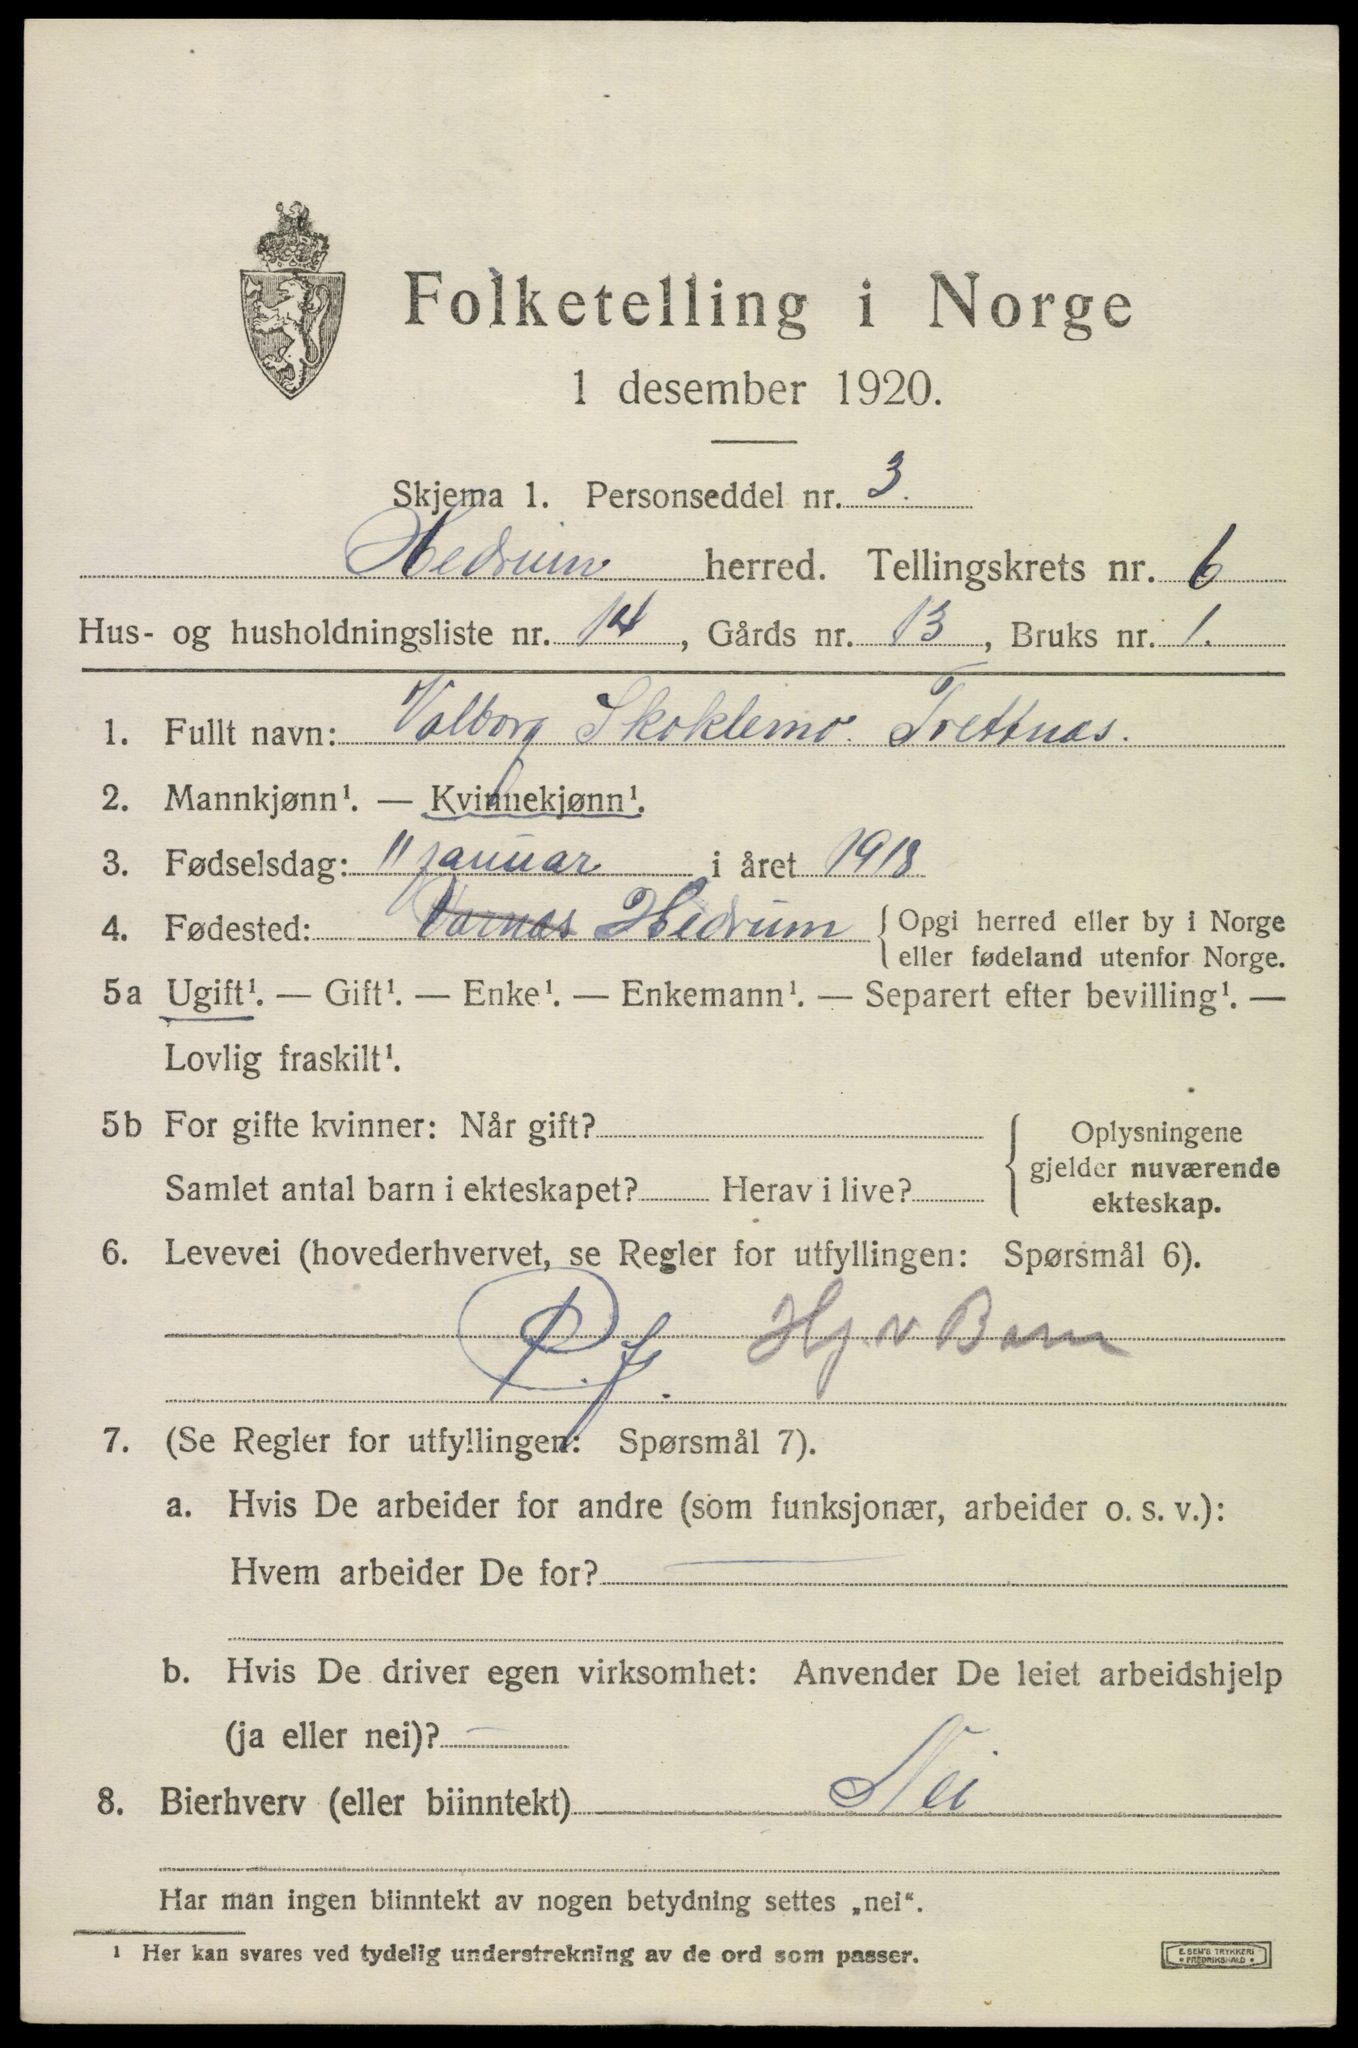 Folketelling i Norge
1 desember 1920.
Skjema 1. Personseddel nr. 3.
Hedrum herred. Tellingskrets nr. 6
Hus- og husholdningsliste nr. 14, Gårds nr. 13, Bruks nr. 1.
1. Fullt navn: Valborg Skoklemo. Trettnas.
2. Mannkjønn¹. — Kvinnekjønn¹.
3. Fødselsdag: 11 januar i året 1918
4. Fødested: Varnas Hedrum { Opgi herred eller by i Norge
eller fødeland utenfor Norge.
5a Ugift¹. — Gift¹. — Enke¹. — Enkemann¹. — Separert efter bevilling¹. —
Lovlig fraskilt¹.
5b For gifte kvinner: Når gift?
Samlet antal barn i ekteskapet? Herav i live?
{ Oplysningene
gjelder nuværende
ekteskap.
6. Levevei (hovederhvervet, se Regler for utfyllingen: Spørsmål 6).
P. f. Hj. v Barn
7. (Se Regler for utfyllingen: Spørsmål 7).
a. Hvis De arbeider for andre (som funksjonær, arbeider o. s. v.):
Hvem arbeider De for? —
b. Hvis De driver egen virksomhet: Anvender De leiet arbeidshjelp
(ja eller nei)? —
8. Bierhverv (eller biinntekt) Nei
Har man ingen biinntekt av nogen betydning settes „nei“.
¹ Her kan svares ved tydelig understrekning av de ord som passer.
E. SEM'S TRYKKERI
• FREDRIKSHALD •